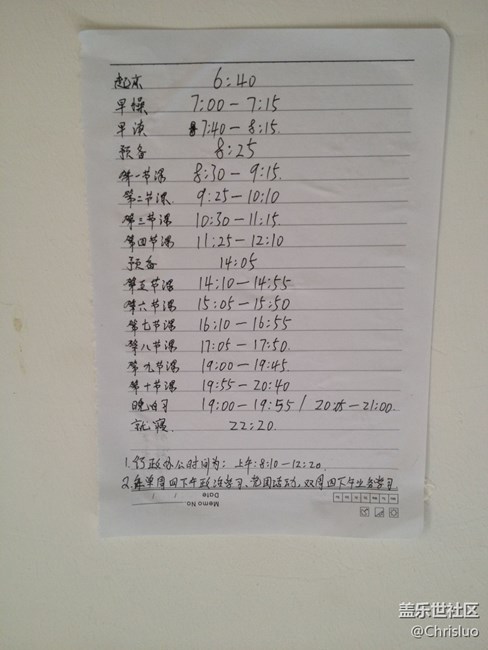 起床 6:40
早操 7:00-7:15
早读 7:40-8:15
预备 8:25
第一节课 8:30-9:15
第二节课 9:25-10:10
第三节课 10:30-11:15
第四节课 11:25-12:10
预备 14:05
第五节课 14:10-14:55
第六节课 15:05-15:50
第七节课 16:10-16:55
第八节课 17:05-17:50
第九节课 19:00-19:45
第十节课 19:55-20:40
晚自习 19:00-19:55 / 20:05-21:00
就寝 22:20
1.行政办公时间为:上午:8:10-12:20
2.单周四下午政治学习、党团活动,双周四下午业务学习
Memo No.
Date / /
盖乐世社区
@Chrisluo